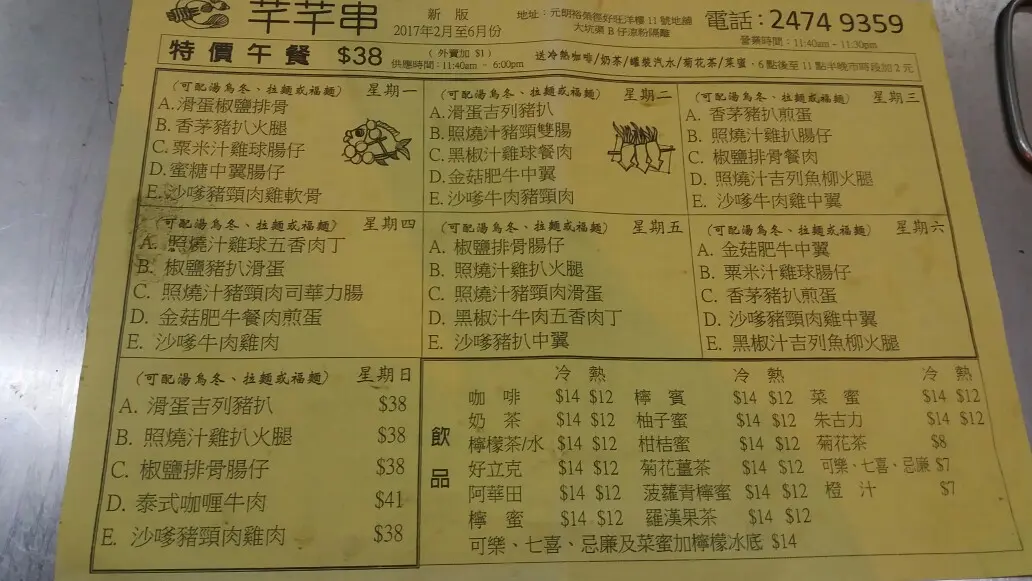 芊芊串
新版
2017年2月至6月份
地址：元朗裕榮徑好旺洋樓11號地舖
大坑渠B仔涼粉隔離
電話：2474 9359
營業時間：11:40am - 11:30pm
特價午餐 $38
（外賣加 $1）
供應時間：11:40am - 6:00pm
送冷熱咖啡/奶茶/罐裝汽水/菊花茶/菜蜜，6點後至11點半晚市時段加2元
(可配湯烏冬、拉麵或福麵) 星期一
A.滑蛋椒鹽排骨
B.香茅豬扒火腿
C.粟米汁雞球腸仔
D.蜜糖中翼腸仔
E.沙嗲豬頸肉雞軟骨
(可配湯烏冬、拉麵或福麵) 星期二
A.滑蛋吉列豬扒
B.照燒汁豬頸雙腸
C.黑椒汁雞球餐肉
D.金菇肥牛中翼
E.沙嗲牛肉豬頸肉
(可配湯烏冬、拉麵或福麵) 星期三
A. 香茅豬扒煎蛋
B. 照燒汁雞扒腸仔
C. 椒鹽排骨餐肉
D. 照燒汁吉列魚柳火腿
E. 沙嗲牛肉雞中翼
(可配湯烏冬、拉麵或福麵) 星期四
A. 照燒汁雞球五香肉丁
B. 椒鹽豬扒滑蛋
C. 照燒汁豬頸肉司華力腸
D. 金菇肥牛餐肉煎蛋
E. 沙嗲牛肉雞肉
(可配湯烏冬、拉麵或福麵) 星期五
A. 椒鹽排骨腸仔
B. 照燒汁雞扒火腿
C. 照燒汁豬頸肉滑蛋
D. 黑椒汁牛肉五香肉丁
E. 沙嗲豬扒中翼
(可配湯烏冬、拉麵或福麵) 星期六
A. 金菇肥牛中翼
B. 粟米汁雞球腸仔
C. 香茅豬扒煎蛋
D. 沙嗲豬頸肉雞中翼
E. 黑椒汁吉列魚柳火腿
(可配湯烏冬、拉麵或福麵) 星期日
A. 滑蛋吉列豬扒 $38
B. 照燒汁雞扒火腿 $38
C. 椒鹽排骨腸仔 $38
D. 泰式咖喱牛肉 $41
E. 沙嗲豬頸肉雞肉 $38
飲品
冷 熱 冷 熱 冷 熱
咖啡 $14 $12 檸賓 $14 $12 菜蜜 $14 $12
奶茶 $14 $12 柚子蜜 $14 $12 朱古力 $14 $12
檸檬茶/水 $14 $12 柑桔蜜 $14 $12 菊花茶 $8
好立克 $14 $12 菊花薑茶 $14 $12 可樂、七喜、忌廉 $7
阿華田 $14 $12 菠蘿青檸蜜 $14 $12 橙汁 $7
檸蜜 $14 $12 羅漢果茶 $14 $12
可樂、七喜、忌廉及菜蜜加檸檬冰底 $14